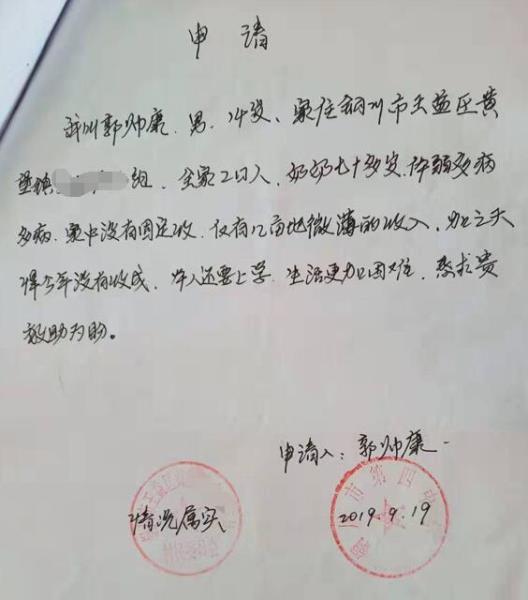 申请
我叫郭帅康、男、14岁、家住铜川市王益区黄
堡镇 组，全家2口人，奶奶七十多岁，体弱多病
多病、家中没有固定收、仅有几亩地微薄的收入，加之天
得今年没有收成，本人还要上学，生活更加困难，恳求贵
救助为盼。
申请人：郭帅康
情况属实
2019.9.19
市第四